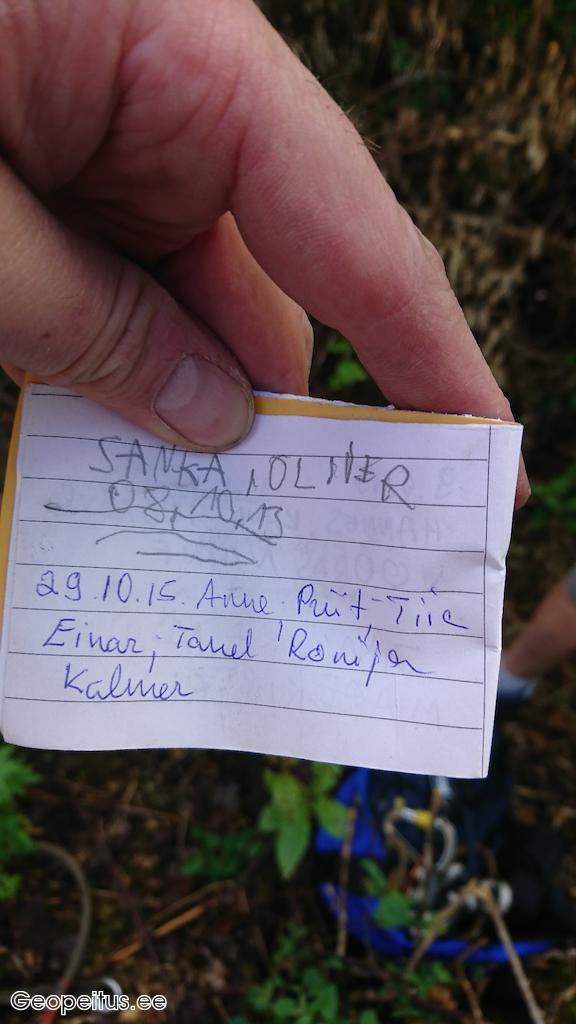 SANKA, OLIVER
08,10,13
29.10.15. Anne. Priit, Tiia
Einar, Tanel Ronija
Kalmer
Geopeitus.ee